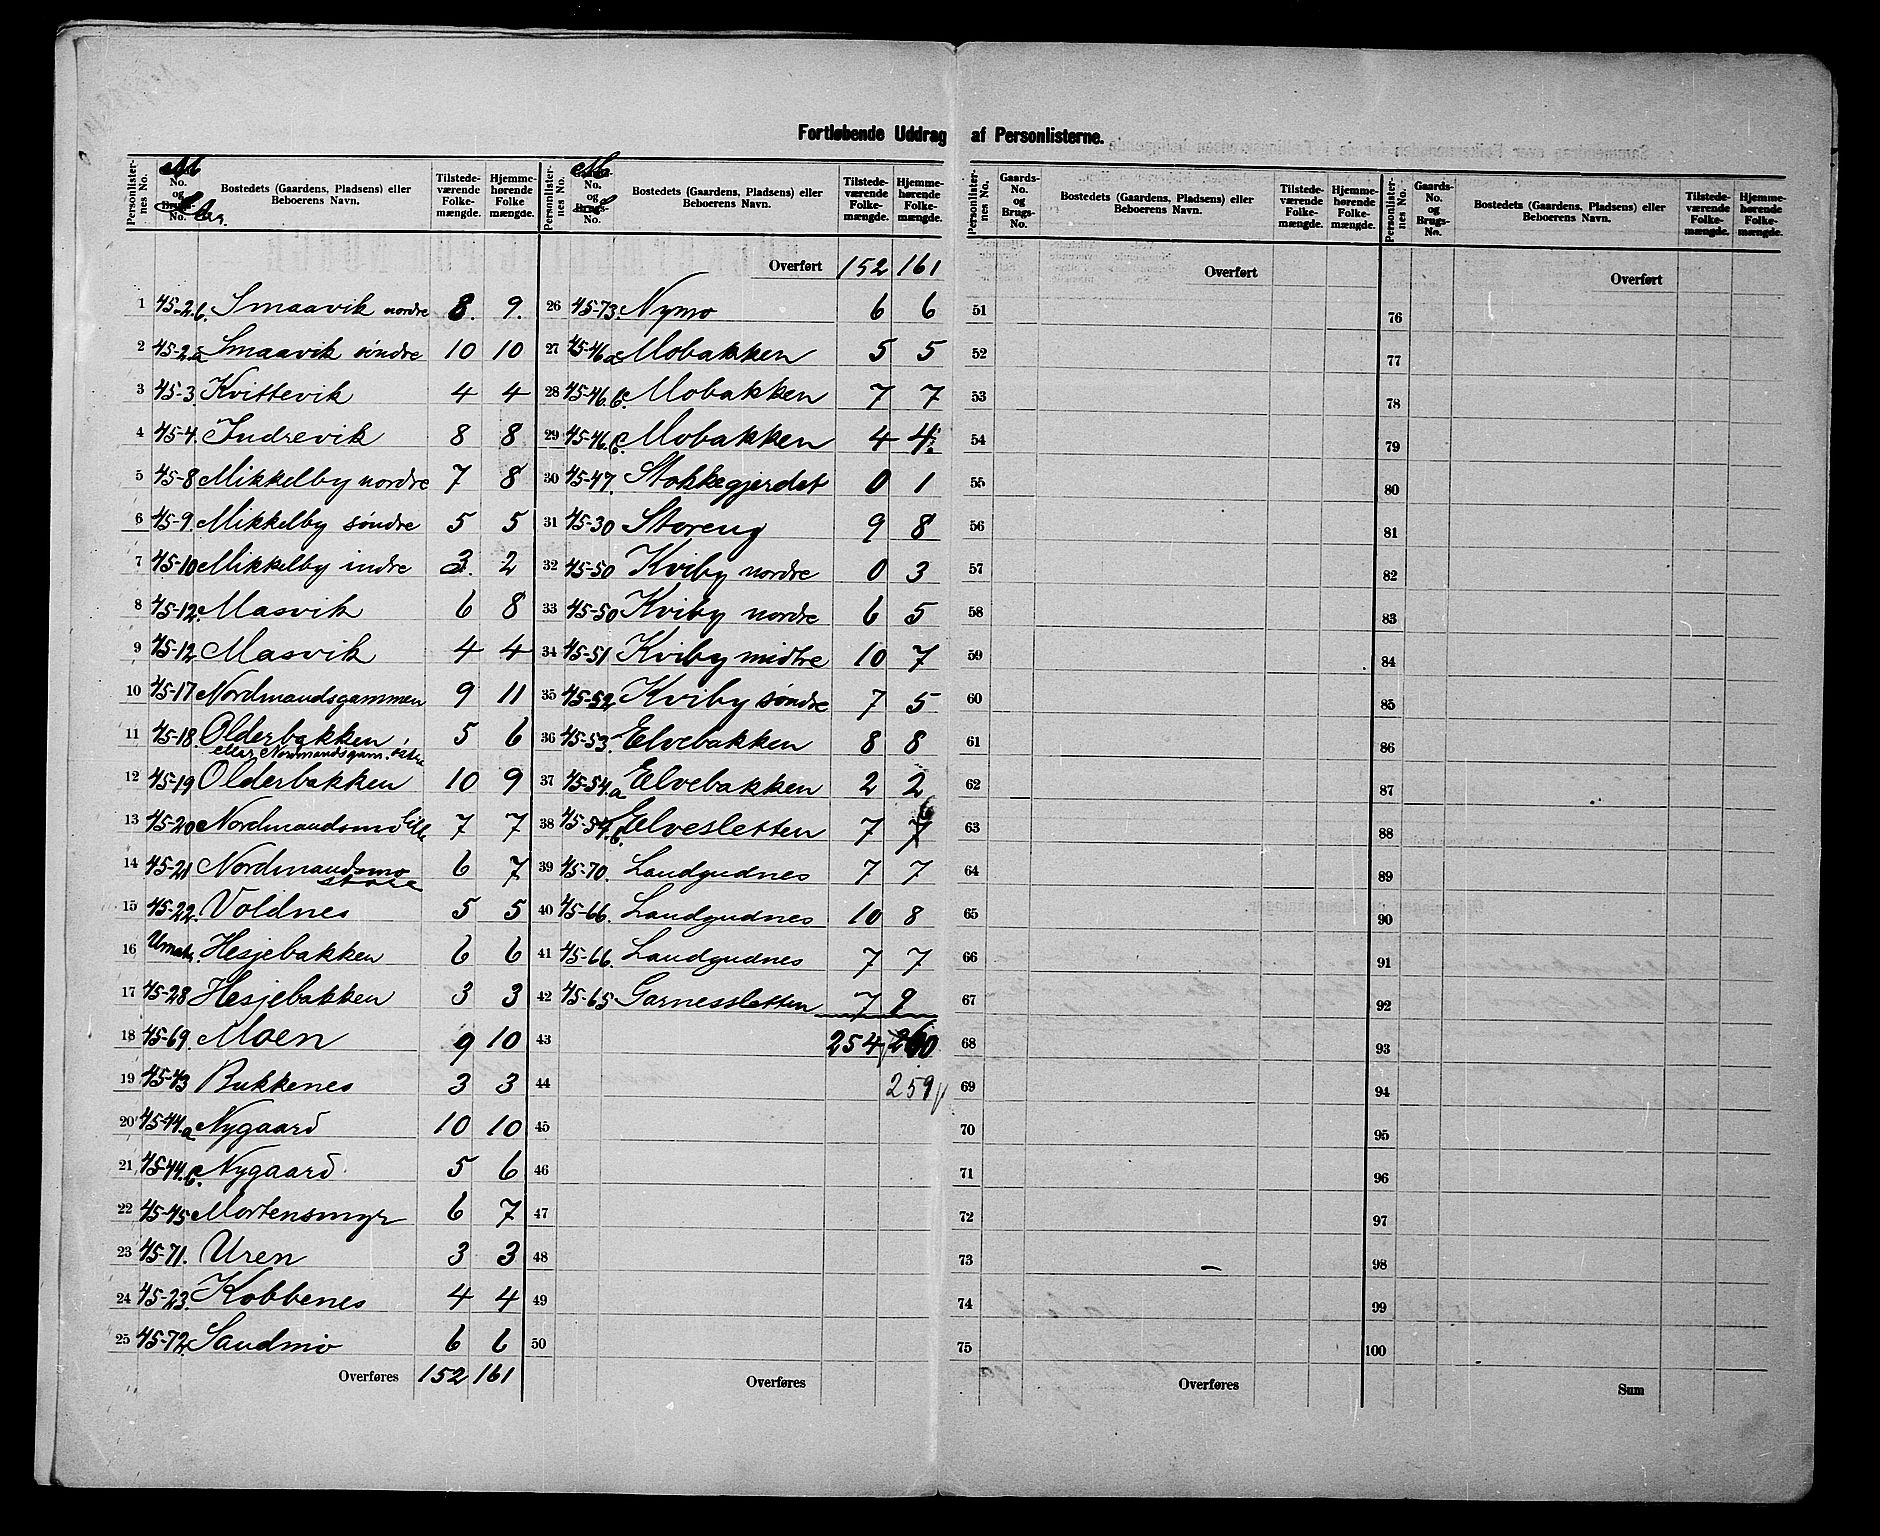 Fortløbende Uddrag af Personlisterne.
Personlisternes No.
No. og Brugs-No.
Bostedets (Gaardens, Pladsens) eller Beboerens Navn.
Tilstedeværende Folkemængde.
Hjemmehørende Folkemængde.
1 45-2.b. Smaavik nordre 8. 9.
2 45-2.a Smaavik søndre 10 10
3 45-3 Kvittevik 4 4
4 45-4. Indrevik 8 8
5 45-8 Mikkelby nordre 7 8
6 45-9. Mikkelby søndre 5 5
7 45-10 Mikkelby indre 3. 2
8 45-12. Masvik 6 8
9 45-12 Masvik 4 4
10 45-17. Nordmandsgammen 9 11
11 45-18. Olderbakken 5 6
eller Normandsgam. østre
12 45-19 Olderbakken 10 9
13 45-20 Nordmandsmo lille 7 7
14 45-21 Nordmandsmo 6 7
store
15 45-22. Voldnes 5 5
16 Umatr. Hesjebakken 6 6
17 45-28 Hesjebakken 3 3
18 45-69. Moen 9 10
19 45-43 Bukkenes 3 3
20 45-44.a Nygaard 10 10
21 45-44.b. Nygaard 5 6
22 45-45 Mortensmyr 6 7
23 45-71. Uren 3 3
24 45-23. Kobbenes 4 4
25 45-72. Sandmo 6 6
Overføres 152 161
Personlisternes No.
No. og Brugs-No.
Bostedets (Gaardens, Pladsens) eller Beboerens Navn.
Tilstedeværende Folkemængde.
Hjemmehørende Folkemængde.
Overført 152 161
26 45-73. Nymo 6 6
27 45-46a Mobakken 5 5
28 45-46.b. Mobakken 7 7
29 45-46.b. Mobakken 4 4
30 45-47. Stokkegjerdet 0 1
31 45-30 Storeng 9 8
32 45-50 Kviby nordre 0 3
33 45-50 Kviby nordre 6 5
34 45-51 Kviby midtre 10 7
35 45-52 Kviby søndre 7 5
36 45-53. Elvebakken 8 8
37 45-54.a Elvebakken 2 2
38 45-54.b. Elvesletten 7 7 6
39 45-70. Landgudnes 7 7
40 45-66. Landgudnes 10 8
41 45-66. Landgudnes 7 7
42 45-65 Garnessletten 7 9
43 254 260
44 259
45
46
47
48
49
50
Overføres
Personlisternes No.
Gaards-No. og Brugs-No.
Bostedets (Gaardens, Pladsens) eller Beboerens Navn.
Tilstedeværende Folkemængde.
Hjemmehørende Folkemængde.
Overført
51
52
53
54
55
56
57
58
59
60
61
62
63
64
65
66
67
68
69
70
71
72
73
74
75
Overføres
Personlisternes No.
Gaards-No. og Brugs-No.
Bostedets (Gaardens, Pladsens) eller Beboerens Navn.
Tilstedeværende Folkemængde.
Hjemmehørende Folkemængde.
Overført
76
77
78
79
80
81
82
83
84
85
86
87
88
89
90
91
92
93
94
95
96
97
98
99
100
Sum